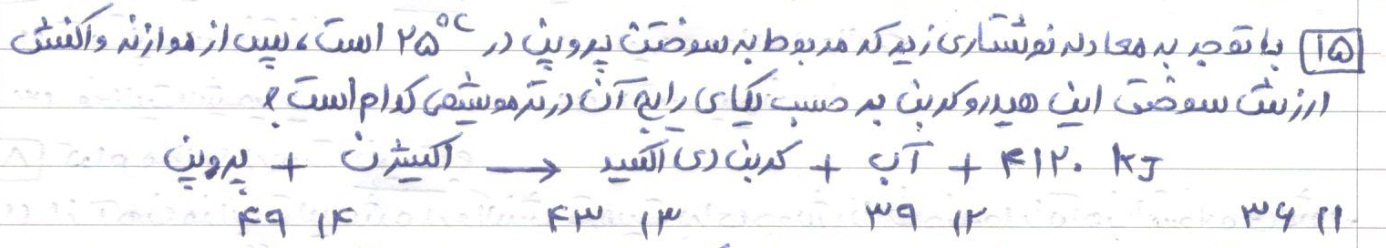 ۱۵ با توجه به معادله نوشتاری زیر که مربوط به سوختن پروپین در ۲۵°C است، پس از موازنه واکنش
ارزش سوختی این هیدروکربن بر حسب یکای رایج آن در ترموشیمی کدام است؟
پروپین + اکسیژن → کربن دی اکسید + آب + ۴۱۲۰ kJ
۳۶ (۱ ۳۹ (۲ ۴۳ (۳ ۴۹ (۴